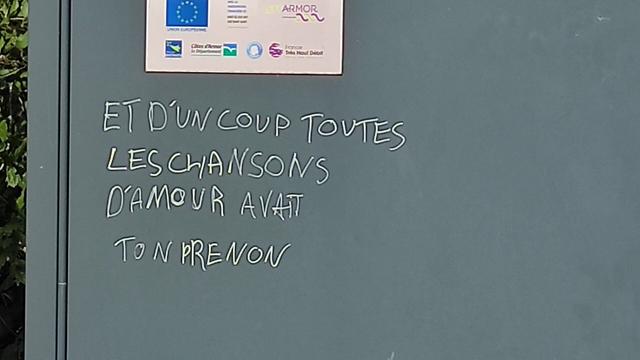 UNION EUROPÉENNE
ARMOR
Côtes d'Armor
le Département
France
Très Haut Débit
ET D'UN COUP TOUTES
LES CHANSONS
D'AMOUR AVAIT
TON PRENON